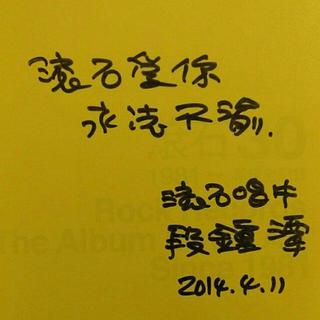 滾石愛你
永誌不渝.
滾石30
Rock
The Album
Since 1981
滾石唱片
段鍾潭
2014.4.11